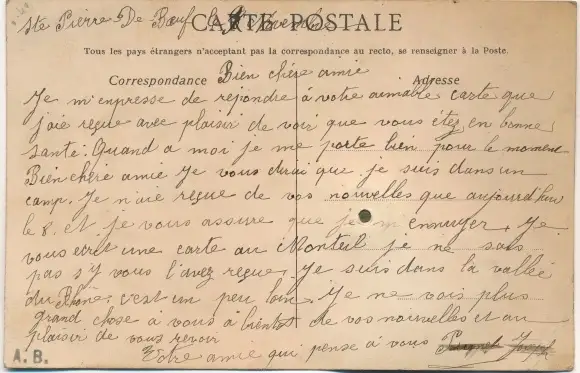 Ste Pierre De Bœuf le 8 Novembre
CARTE POSTALE
Tous les pays étrangers n'acceptant pas la correspondance au recto, se renseigner à la Poste.
Correspondance Adresse
Bien chère amie
Je m'enpresse de rejondre à votre aimable carte que
j'aie reçue avec plaisir de voir que vous étez en bonne
santé. Quand a moi je me porte bien pour le moment
Bien chère amie je vous dirai que je suis dans un
camp. Je n'aie reçue de vos nouvelles que aujourd'hui
le 8. et je vous assure que je m ennuyer, Je
vous ecrit une carte au Monteil je ne sais
pas s'y vous l'avez reçue. Je suis dans la vallée
du Rhône. c'est un peu loin. Je ne vois plus
grand chose à vous à bientôt de vos nouvelles et au
plaisir de vous revoir
Votre amie qui pense à vous
A. B.